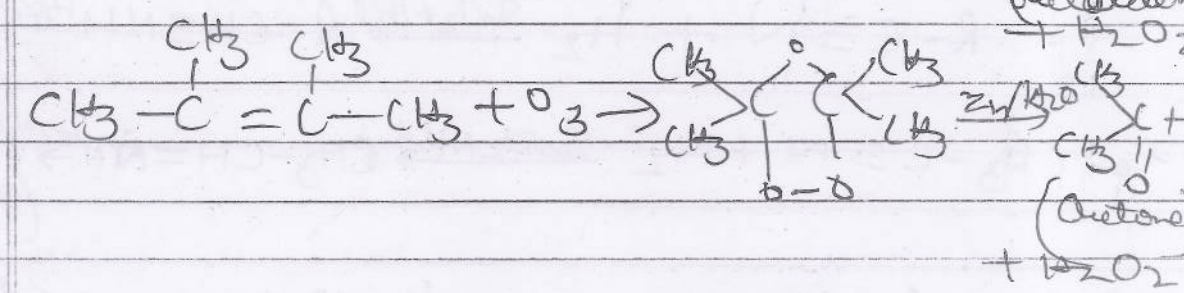 + H2O2
CH3 CH3
CH3 - C = C - CH3 + O3 → CH3 CH3 C O C CH3 CH3 O - O Zn/H2O → CH3 CH3 C = O +
(Acetone
+ H2O2